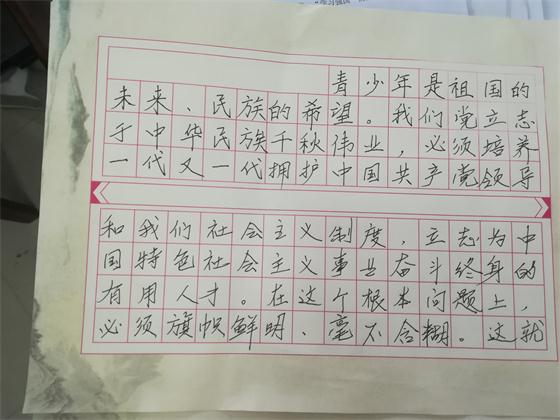 "学习强国"
青少年是祖国的
未来、民族的希望。我们党立志
于中华民族千秋伟业，必须培养
一代又一代拥护中国共产党领导
和我们社会主义制度，立志为中
国特色社会主义事业奋斗终身的
有用人才。在这个根本问题上，
必须旗帜鲜明、毫不含糊。这就